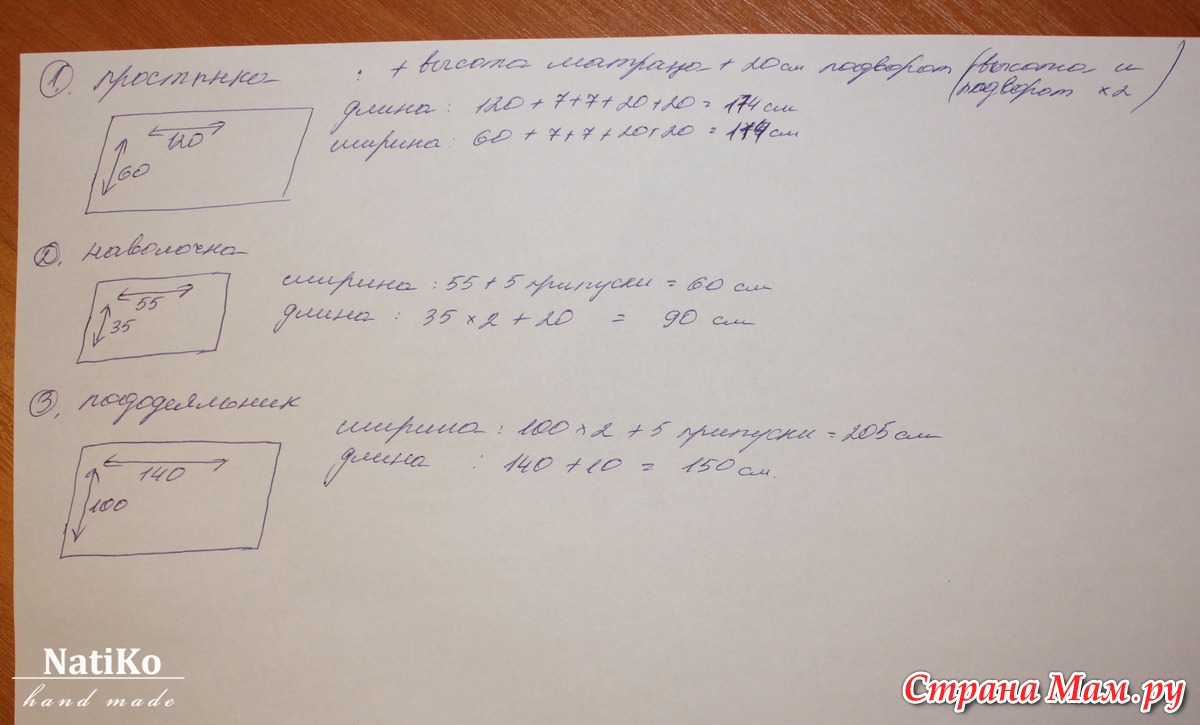 1. простынка : + высота матраца + 20 см подворот (высота и подворот ×2)
120
60
длина : 120 + 7+7+20+20 = 174 см
ширина : 60 + 7+7+20+20 = 114 см
2. наволочка
55
35
ширина : 55 + 5 припуски = 60 см
длина : 35 × 2 + 20 = 90 см
3. пододеяльник
140
100
ширина : 100 × 2 + 5 припуски = 205 см
длина : 140 + 10 = 150 см.
NatiKo
hand made
Страна Мам.ру